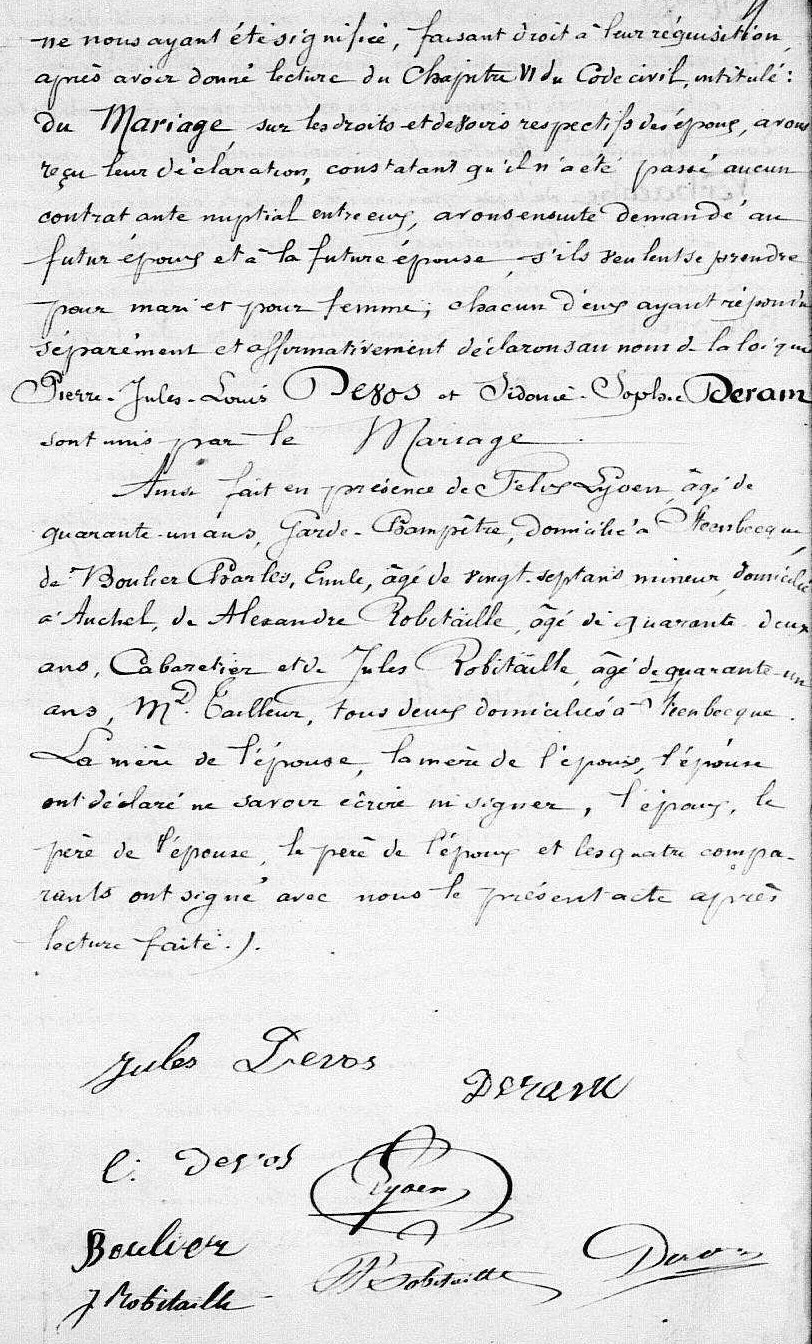 ne nous ayant été signifiée, faisant droit à leur réquisition,
après avoir donné lecture du Chapitre VI du Code civil, intitulé :
du Mariage sur les droits et devoirs respectifs des époux, avons
reçu leur déclaration, constatant qu'il n'a été passé aucun
contrat ante nuptial entre eux, avons ensuite demandé au
futur époux et à la future épouse, s'ils veulent se prendre
pour mari et pour femme ; chacun d'eux ayant répondu
séparément et affirmativement déclarons au nom de la loi que
Pierre-Jules-Louis Devos et Sidonie-Sophie Deram
sont unis par le Mariage.
Ainsi fait en présence de Felix Lyoen, âgé de
quarante-un ans, Garde-Champêtre, domicilié à Steenbecque,
de Boulier Charles, Emile, âgé de vingt-sept ans, mineur, domicilié
à Auchel, de Alexandre Robitaille, âgé de quarante-deux
ans, Cabaretier et de Jules Robitaille, âgé de quarante-un
ans, Md. Tailleur, tous deux domiciliés à Steenbecque.
La mère de l'épouse, la mère de l'époux, l'épouse
ont déclaré ne savoir écrire ni signer, l'époux, le
père de l'épouse, le père de l'époux et les quatre compa-
rants ont signé avec nous le présent acte après
lecture faite ./.
Jules Devos
Deram
C. Devos
Lyoen
Boulier
J Robitaille
A Robitaille